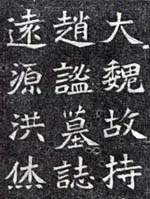 大魏故持
趙謐墓誌
遠源洪烋